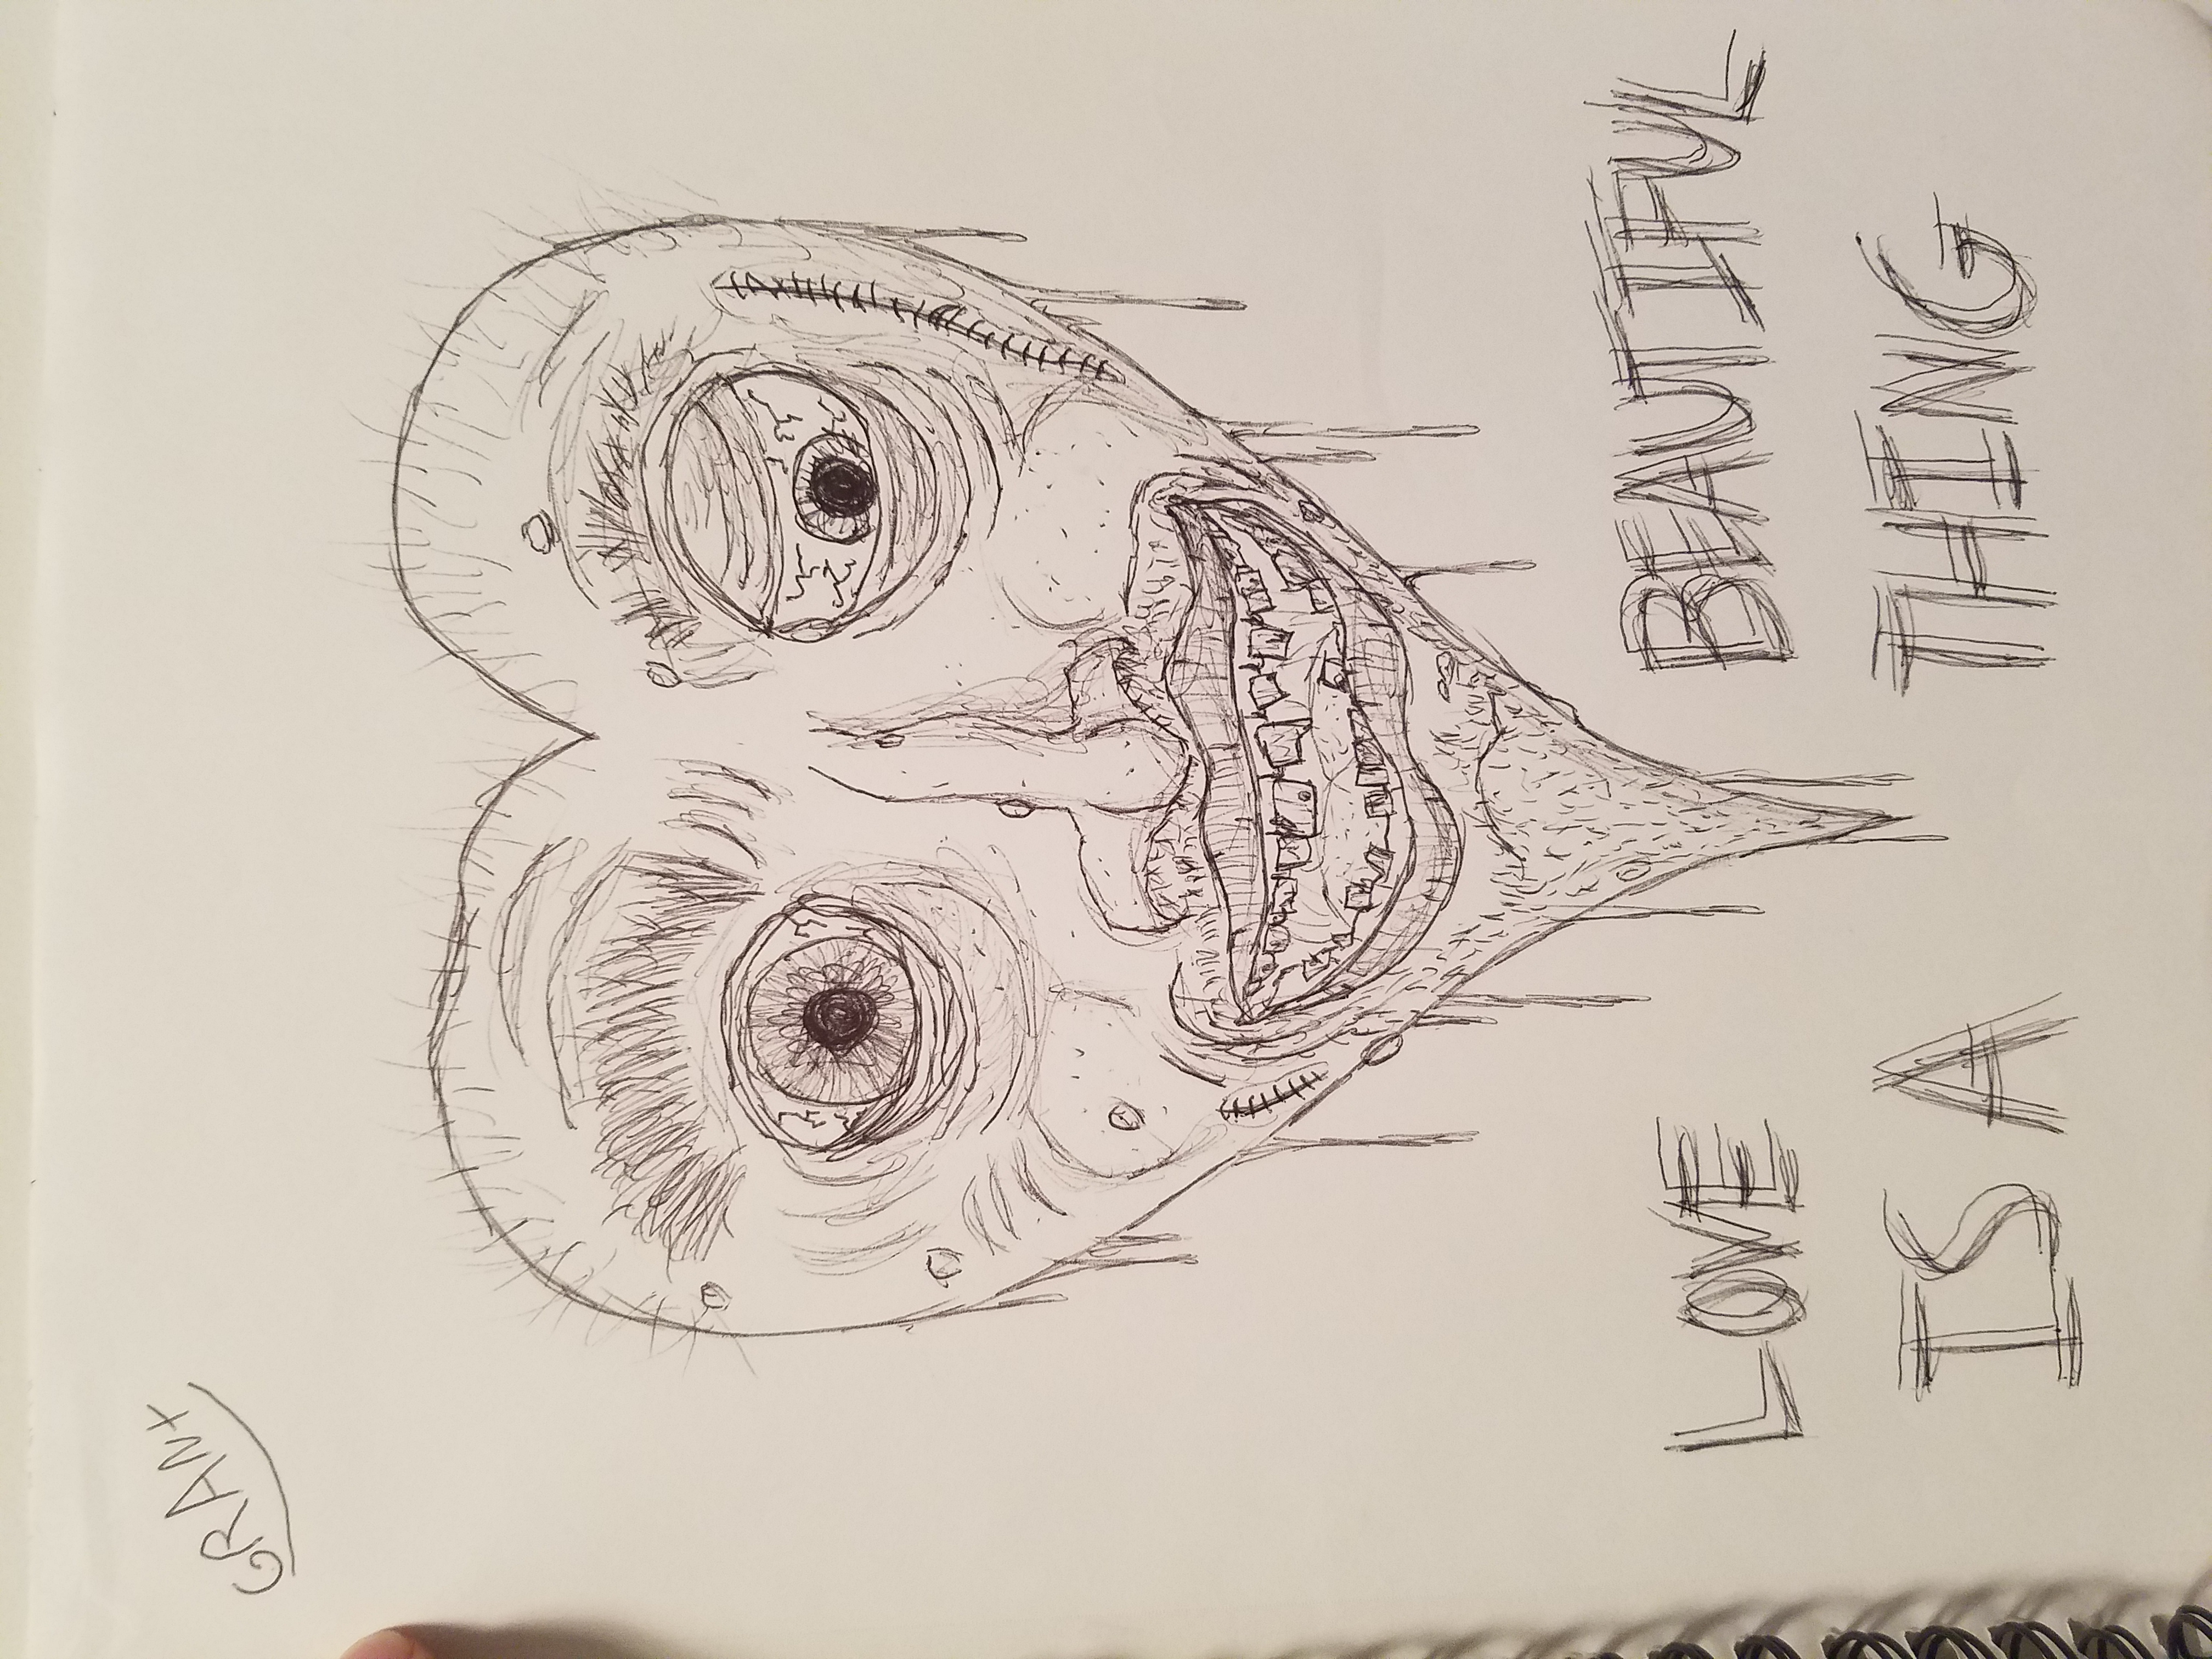 GRANT
LOVE
IS A
BEAUTIFUL
THING